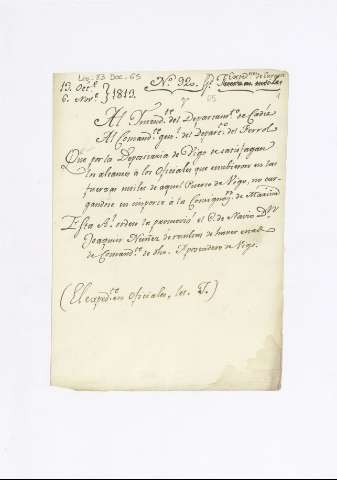 Leg. 83 Doc. 65
13. Oct.e
6. Nov.e } 1813.
N.o 920.
7
65
1
Al Yntend.te del Departam.to de Cadiz
Al Comand.te gen.l del Depart.o del Ferrol
Que por la Depositaria de Vigo se satisfagan
los alcances à los Oficiales que estubieron en las
fuerzas sutiles de aquel Puerto de Vigo, no car-
gandose su importe à la Consign.on de Marina
Esta R.l orden la promovió el C. de Navio D.n
Joaquin Nuñez de resultas de haver
de Comand.te de dho. Apostadero de Vigo.
(El exped.te en Oficiales, let. F.)